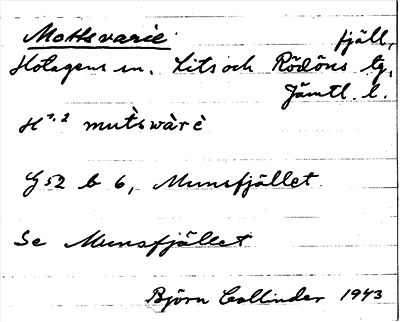 Mottsvarie fjäll,
Hotagens sn. Lits och Rödöns tg.
Jämtl. l.
H 1,2 mut̀swàrè
G 52 b 6, Munsfjället
Se Munsfjället
Björn Collinder 1943